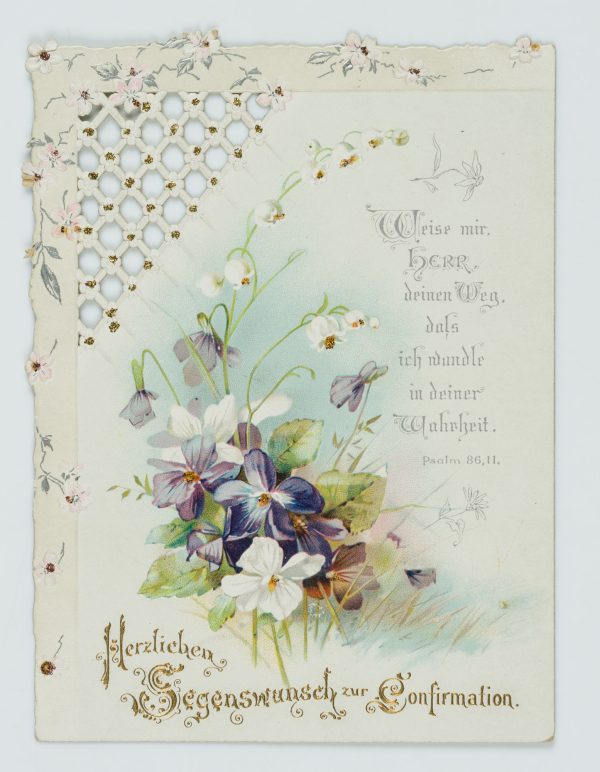 Weise mir,
HERR,
deinen Weg,
daſs
ich wandle
in deiner
Wahrheit.
Psalm 86,11.
Herzlichen
Segenswunsch zur Confirmation.